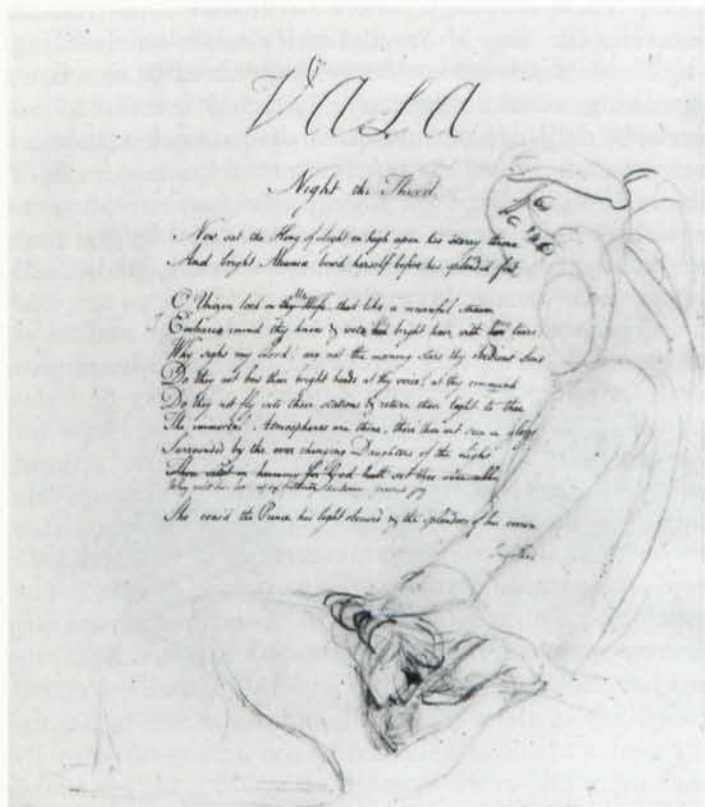 VALA
Night the Third
Now sat the King of Light on high upon his starry throne
And bright Ahania bow'd herself before his splendid feet
O Urizen look on thy Wife that like a mournful stream
Embrace round thy knees & wet her bright hair with her tears
Why sighs my Lord! are not the morning stars thy obedient Sons
Do they not bow their bright heads at thy voice? at thy command
Do they not fly into their stations & return their light to thee
The immortal Atmospheres are thine, there thou art seen in glory
Surrounded by the ever changing Daughters of the Light
Thou in harmony for God hath set thee over all
Why wilt thou look upon futurity present joy
She ceas'd the Prince his light obscurd & the splendors of his crown